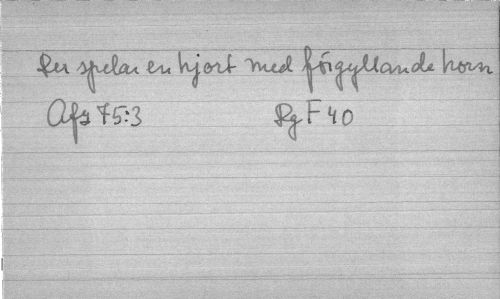 Der spelar en hjort med förgyllande horn
Afz 75:3 Rg F 40